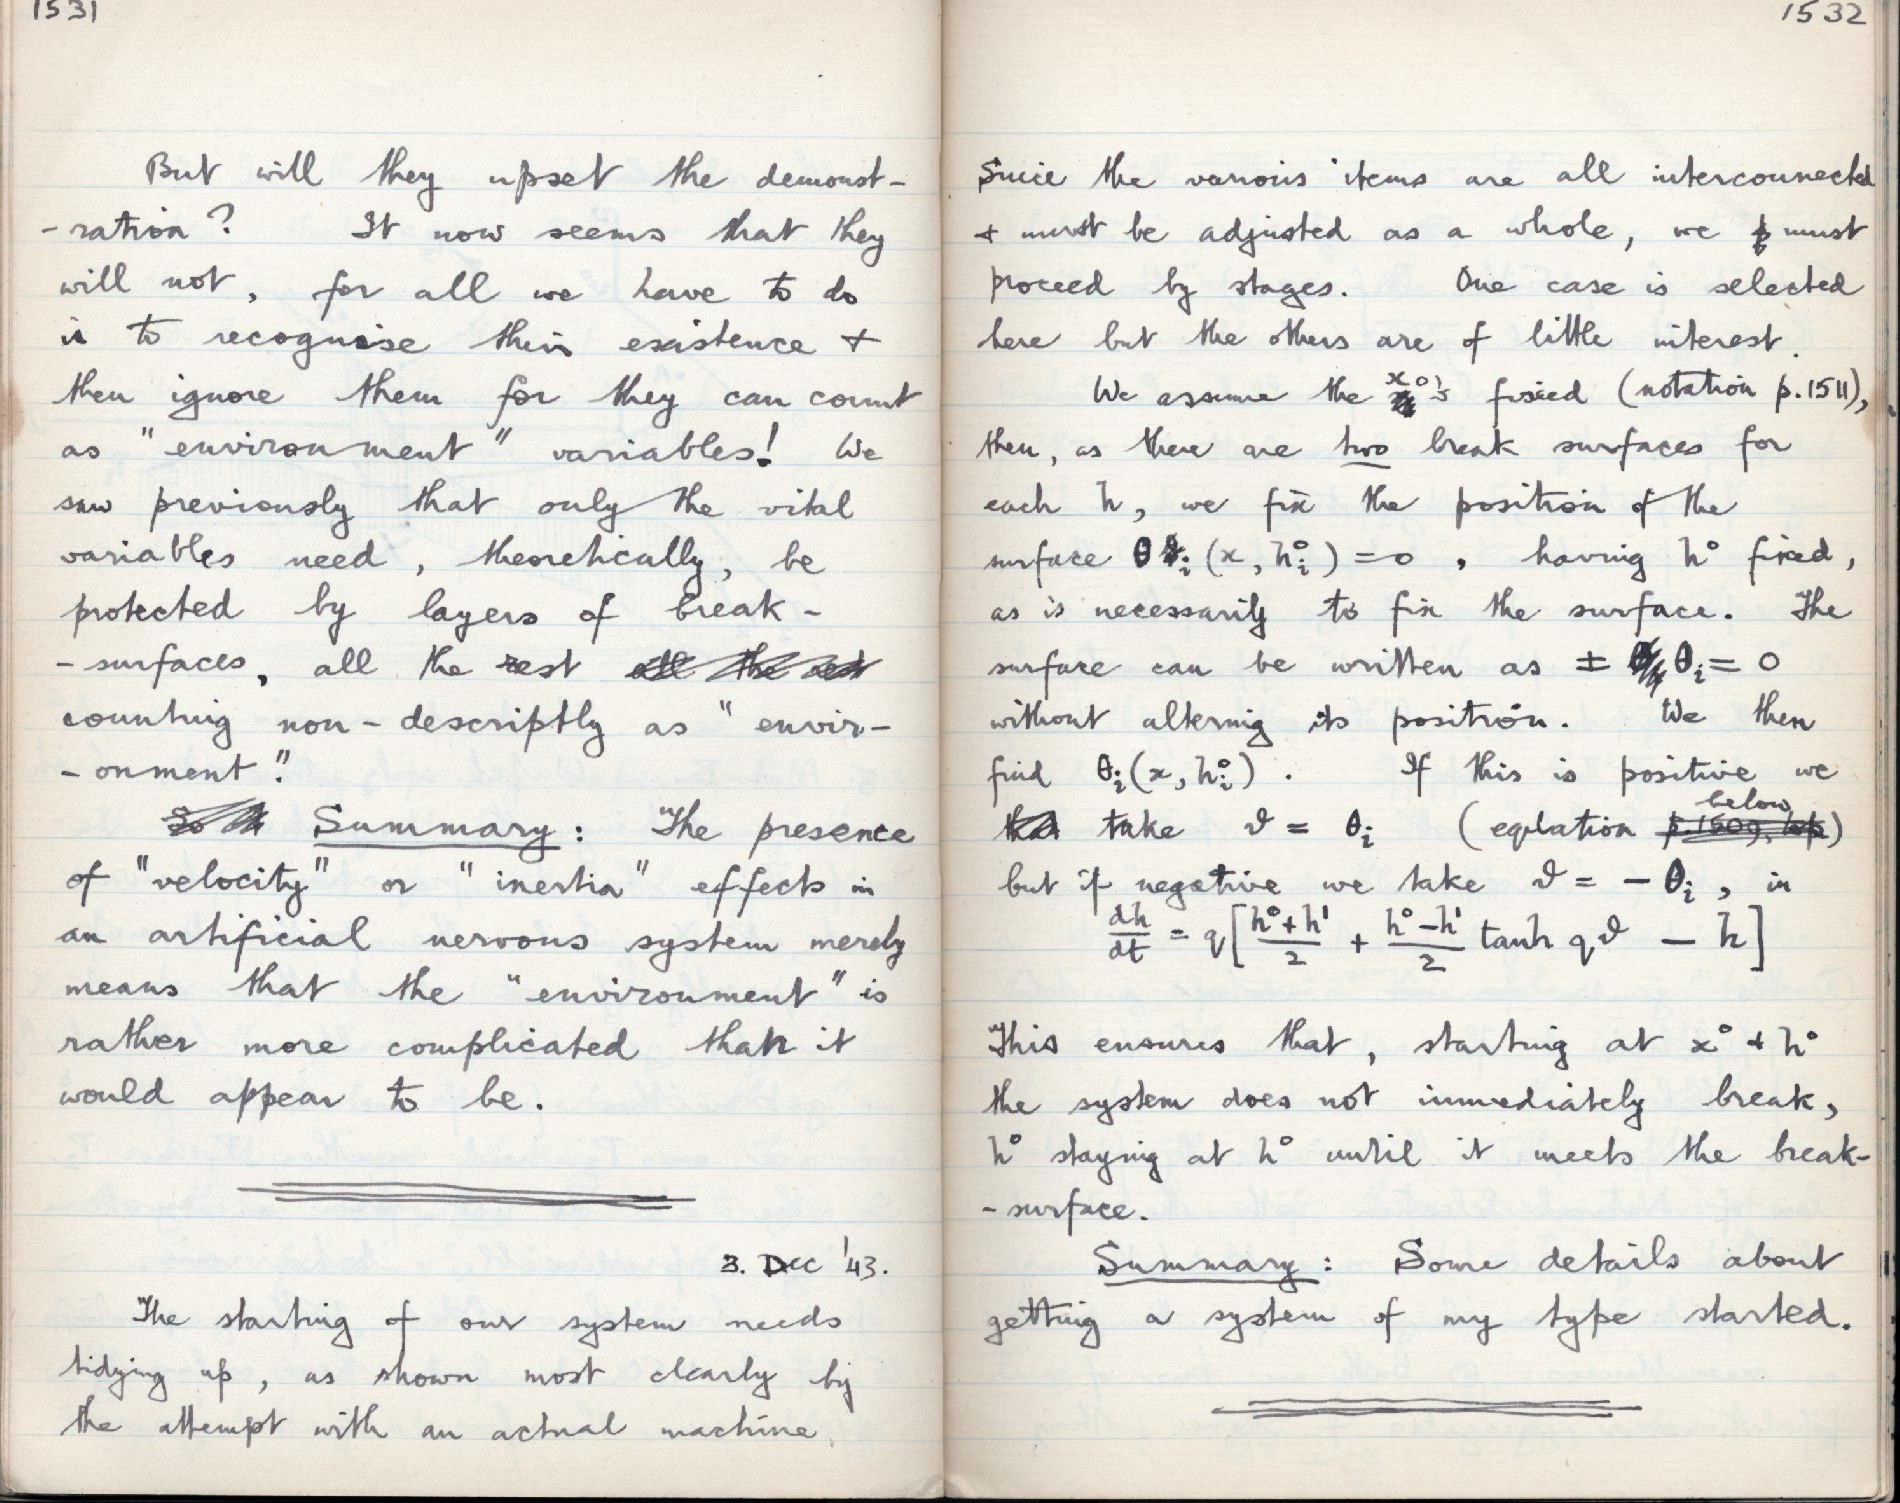 1531
But will they upset the demonst-
-ration? It now seems that they
will not, for all we have to do
is to recognise their existence +
then ignore them for they can count
as "environment" variables! We
saw previously that only the vital
variables need, theoretically, be
protected by layers of break-
-surfaces, all the rest all the rest
counting non-descriptly as "envir-
-onment".
Summary: The presence
of "velocity" or "inertia" effects in
an artificial nervous system merely
means that the "environment" is
rather more complicated than it
would appear to be.
3. Dec '43.
The starting of our system needs
tidying up, as shown most clearly by
the attempt with an actual machine.
1532
Since the various items are all interconnected
+ must be adjusted as a whole, we must
proceed by stages. One case is selected
here but the others are of little interest.
We assume the x⁰'s fixed (notation p.1511),
then, as there are two break surfaces for
each h, we fix the position of the
surface θᵢ(x, hᵢ⁰) = 0, having h⁰ fixed,
as is necessarily to fix the surface. The
surface can be written as ± θᵢ = 0
without altering its position. We then
find θᵢ(x, hᵢ⁰). If this is positive we
take ϑ = θᵢ (equation below p.1509, top)
but if negative we take ϑ = − θᵢ, in
dh/dt = q[(h⁰+h¹)/2 + (h⁰−h¹)/2 tanh qϑ − h]
This ensures that, starting at x⁰ + h⁰
the system does not immediately break,
h⁰ staying at h⁰ until it meets the break-
-surface.
Summary: Some details about
getting a system of my type started.